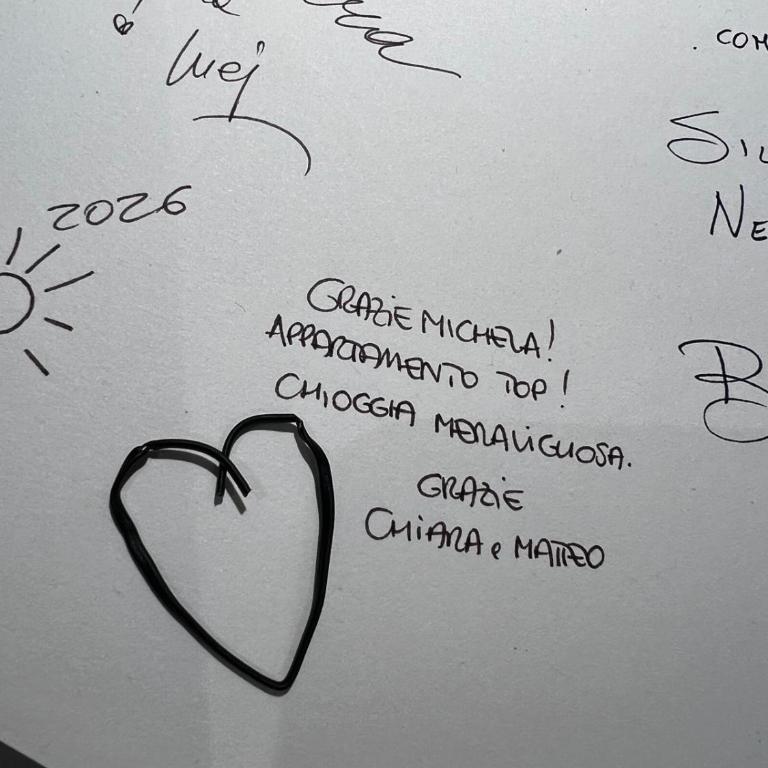 2026
GRAZIE MICHELA!
APPARTAMENTO TOP!
CHIOGGIA MERAVIGLIOSA.
GRAZIE
CHIARA e MATTEO